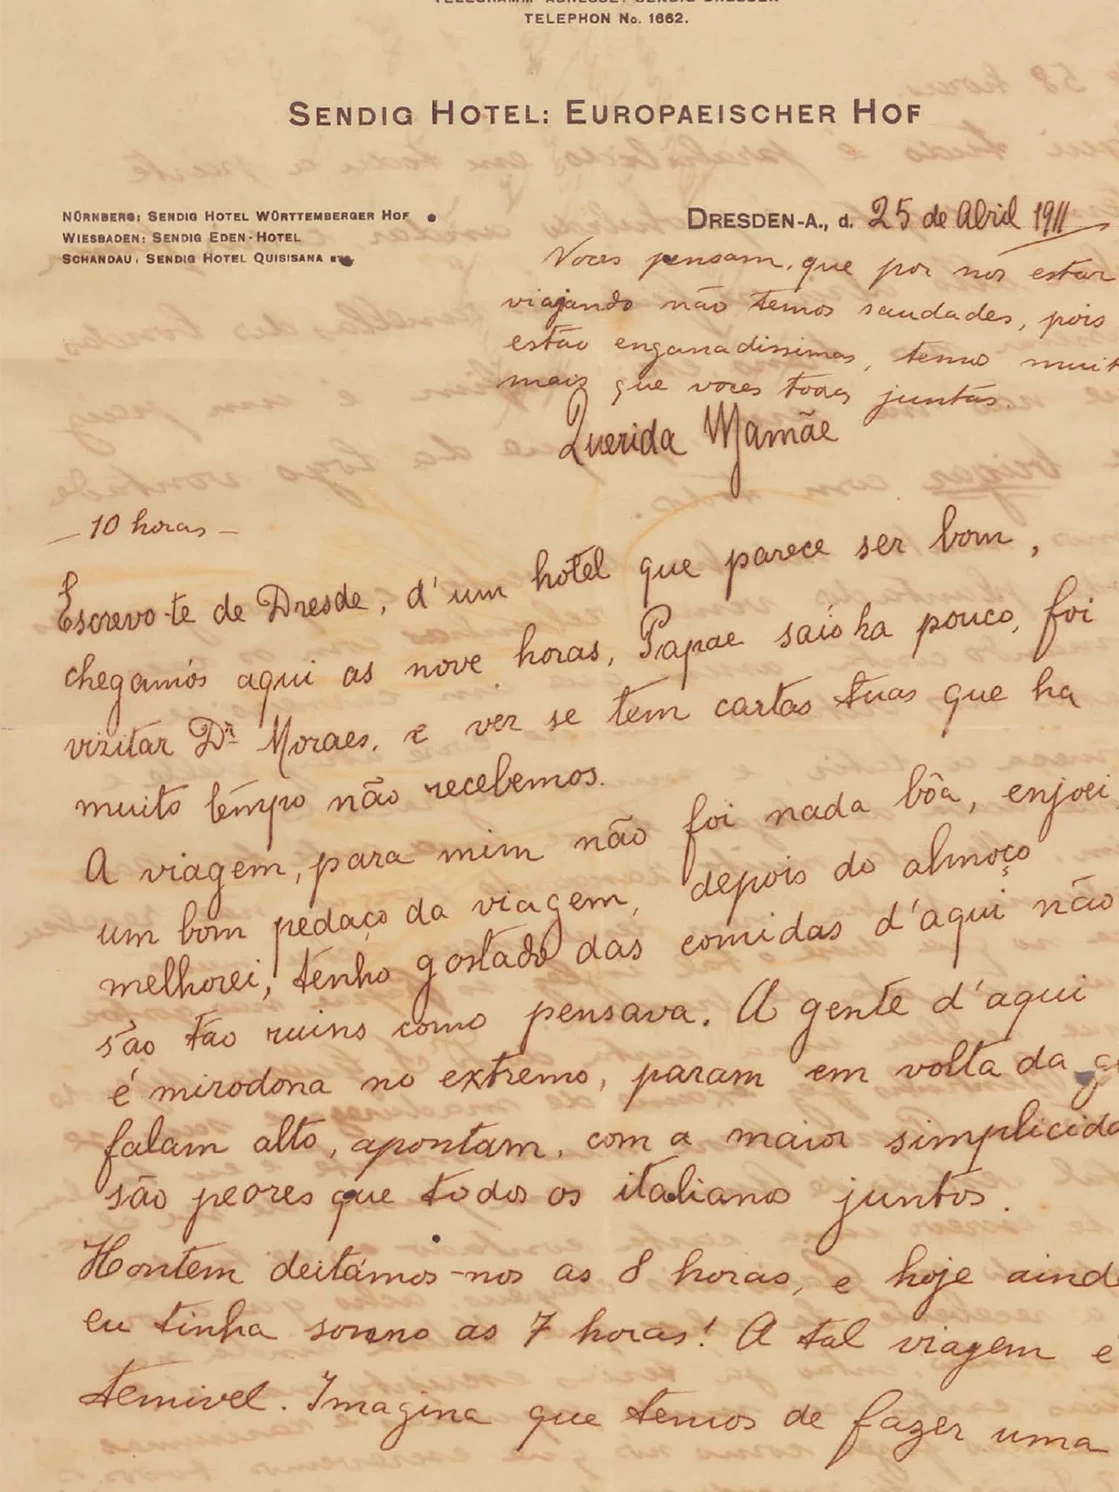 TELEGRAMM-ADRESSE: SENDIG DRESDEN
TELEPHON No. 1662.
SENDIG HOTEL: EUROPAEISCHER HOF
NÜRNBERG: SENDIG HOTEL WÜRTTEMBERGER HOF
WIESBADEN: SENDIG EDEN-HOTEL
SCHANDAU: SENDIG HOTEL QUISISANA
DRESDEN-A., d. 25 de Abril 1911
Voces pensam, que por nós estar
viajando não temos saudades, pois
estão enganadissimas, temos muit
mais que voces todas juntas.
Querida Mamãe
- 10 horas -
Escrevo-te de Dresde, d'um hotel que parece ser bom,
chegamós aqui as nove horas, Papae saió ha pouco, foi
vizitar Dr Moraes, e ver se tem cartas tuas que ha
muito tempo não recebemos.
A viagem, para mim não foi nada bôa, enjoei
um bom pedaço da viagem, depois do almoço
melhorei, tenho gostado das comidas d'aqui não
são tão ruins como pensava. A gente d'aqui
é mirodona no extremo, param em volta da ge
falam alto, apontam, com a maior simplicida
são peores que todos os italianos juntos.
Hontem deitámos-nos as 8 horas, e hoje aind
eu tinha somno as 7 horas! A tal viagem e
temivel. Imagina que temos de fazer uma